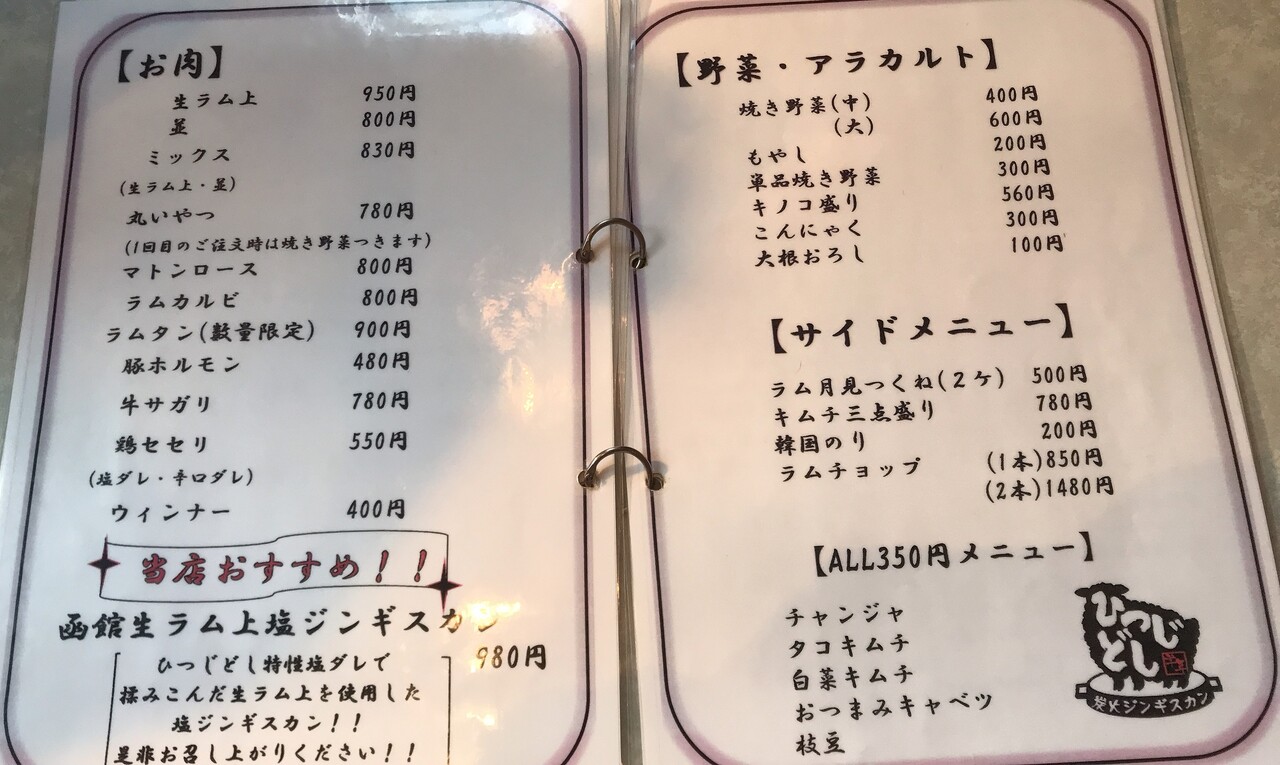 【お肉】
生ラム上 950円
並 800円
ミックス 830円
(生ラム上・並)
丸いやつ 780円
(1回目のご注文時は焼き野菜つきます)
マトンロース 800円
ラムカルビ 800円
ラムタン(数量限定) 900円
豚ホルモン 480円
牛サガリ 780円
鶏セセリ 550円
(塩ダレ・辛口ダレ)
ウィンナー 400円
当店おすすめ!!
函館生ラム上塩ジンギスカン
980円
ひつじどし特性塩ダレで
揉みこんだ生ラム上を使用した
塩ジンギスカン!!
是非お召し上がりください!!
【野菜・アラカルト】
焼き野菜(中) 400円
(大) 600円
もやし 200円
単品焼き野菜 300円
キノコ盛り 560円
こんにゃく 300円
大根おろし 100円
【サイドメニュー】
ラム月見つくね(2ケ) 500円
キムチ三点盛り 780円
韓国のり 200円
ラムチョップ (1本)850円
(2本)1480円
【ALL350円メニュー】
チャンジャ
タコキムチ
白菜キムチ
おつまみキャベツ
枝豆
ひつじ
どし
炭火ジンギスカン